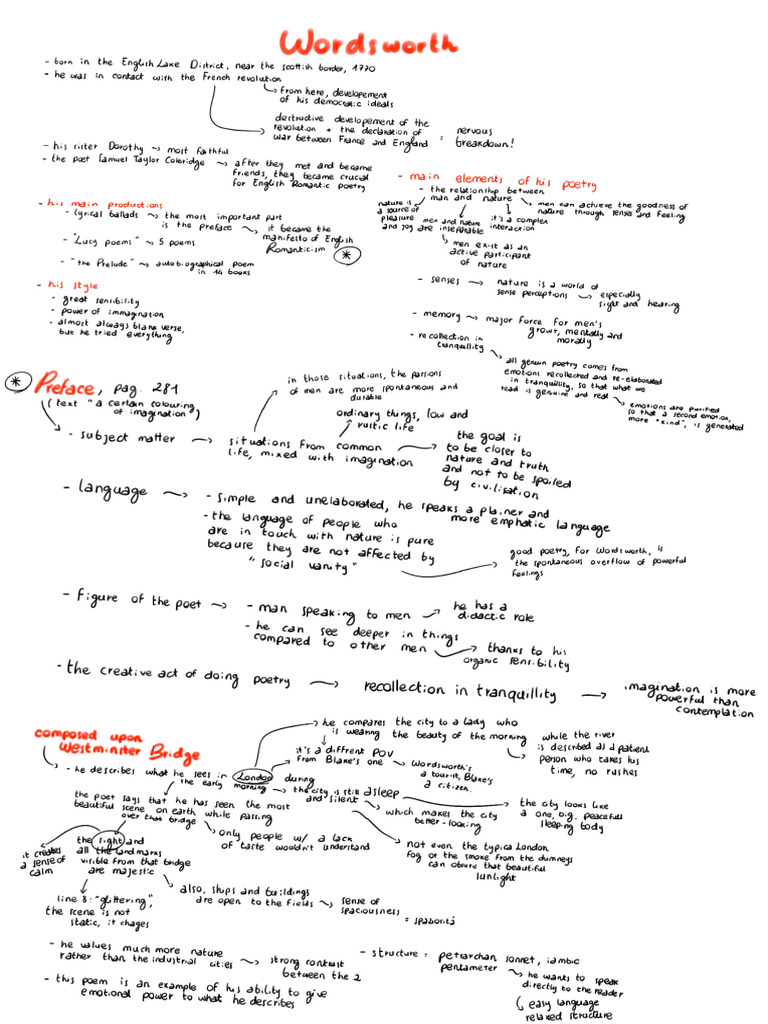 Wordsworth
- born in the English Lake District, near the scottish border, 1770
- he was in contact with the French revolution
from here, developement
of his democratic ideals
destructive developement of the
revolution + the declaration of
war between France and England = nervous
breakdown!
- his sister Dorothy → most faithful
- the poet Samuel Taylor Coleridge → after they met and became
friends, they became crucial
for English Romantic poetry
- his main productions
- Lyrical ballads → the most important part
is the preface → it became the
manifesto of English
Romanticism *
- "Lucy poems" → 5 poems
- "the Prelude" → autobiographical poem
in 14 books
- his style
- great sensibility
- power of immagination
- almost always blank verse,
but he tried everything
- main elements of his poetry
- the relationship between
man and nature → men can achieve the goodness of
nature through senses and feeling
nature is
a source of
pleasure
and joy
men and nature
are inseparable
it's a complex
interaction
men exist as an
active participant
of nature
- senses → nature is a world of
sense perceptions → especially
sight and hearing
- memory → major force for men's
growt, mentally and
morally
- recollection in
tranquillity
all genuin poetry comes from
emotions recollected and re-elaborated
in tranquillity, so that what we
read is genuine and real
emotions are purified
so that a second emotion,
more "kind", is generated
* Preface, pag. 281
(text "a certain colouring
of imagination")
- subject matter → situations from common
life, mixed with imagination
in those situations, the passions
of men are more spontaneous and
durable
ordinary things, low and
rustic life
the goal is
to be closer to
nature and truth
and not to be spoiled
by civilisation
- language → - simple and unelaborated, he speaks a plainer and
more emphatic language
- the language of people who
are in touch with nature is pure
because they are not affected by
"social vanity"
good poetry, for Wordsworth, is
the spontaneous overflow of powerful
feelings
- Figure of the poet → - man speaking to men → he has a
didactic role
- he can see deeper in things
compared to other men → thanks to his
organic sensibility
- the creative act of doing poetry → recollection in tranquillity → imagination is more
powerful than
contemplation
composed upon
Westminster Bridge
- he describes what he sees in London during
the early morning
he compares the city to a lady who
is wearing the beauty of the morning
while the river
is described as a patient
person who takes his
time, no rushes
it's a diffrent POV
from Blake's one → Wordsworth's
a tourist, Blake's
a citizen.
→ the city is still asleep
and silent
which makes the city
better-looking
the city looks like
a one, big, peaceful
sleeping body
not even the typica London
fog or the smoke from the
can obsure that beautiful
sunlight
the poet says that he has seen the most
beautiful scene on earth while passing
over that bridge
only people w/ a lack
of taste wouldn't understand
the sight and
all the landmarks
visible from that bridge
are majestic
it creates
a sense of
calm
line 8: "glittering",
the scene is not
static, it chages
also, ships and buildings
are open to the fields → sense of
spaciousness
= spaziosità
- he values much more nature
rather than the industrial cities → strong contrast
between the 2
- this poem is an example of his ability to give
emotional power to what he describes
- structure: petrarchan sonnet, iambic
pentameter → he wants to speak
directly to the reader
easy language
relaxed structure